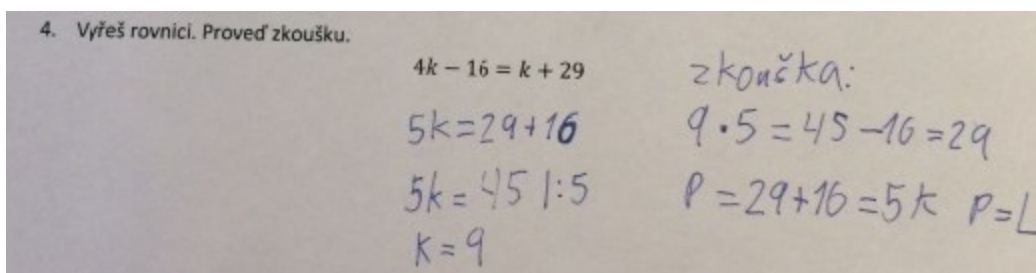 4. Vyřeš rovnici. Proveď zkoušku.
4k − 16 = k + 29
5k=29+16
5k=45 |:5
k=9
zkoučka:
9·5=45−16=29
P=29+16=5k P=L